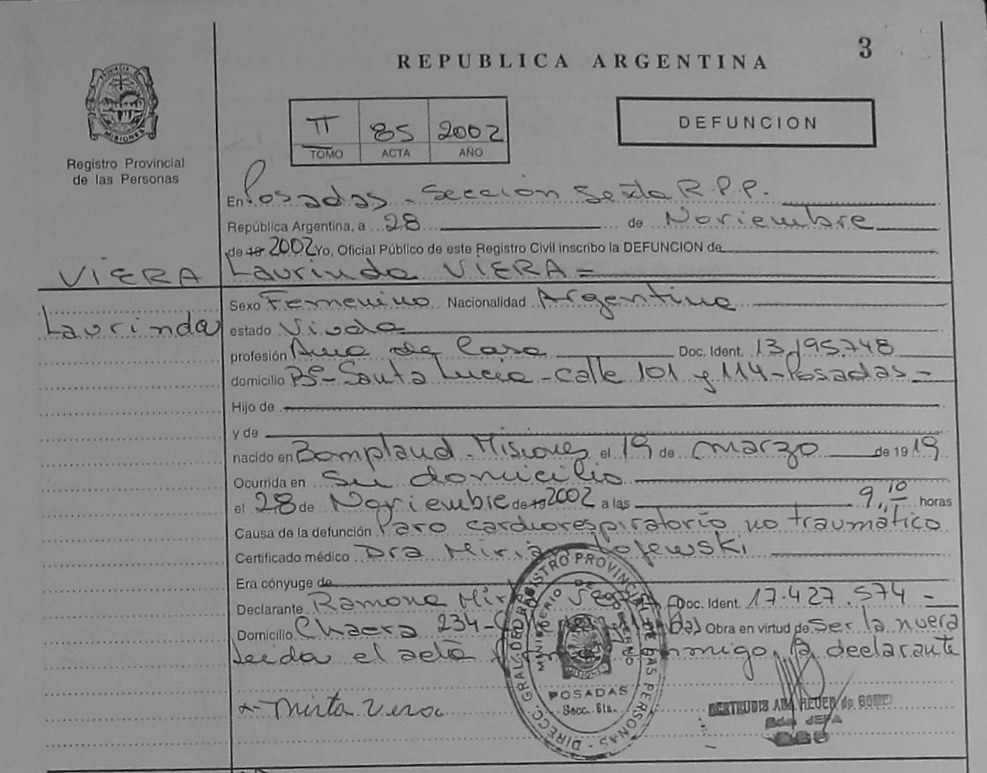 3
REPUBLICA ARGENTINA
II 85 2002
TOMO ACTA AÑO
DEFUNCION
PROVINCIA DE MISIONES
Registro Provincial
de las Personas
VIERA
Laurinda
En Posadas - Sección Sexta R.P.P.
República Argentina, a 28 de Noviembre
de 19 2002 Yo, Oficial Público de este Registro Civil inscribo la DEFUNCION de
Laurinda VIERA =
Sexo Femenino Nacionalidad Argentina
estado Viuda
profesión Ama de Casa Doc. Ident. 13.195.748
domicilio Bº Santa Lucia - calle 101 y 114 - Posadas -
Hijo de
y de
nacido en Bompland - Misiones el 19 de Marzo de 19 19
Ocurrida en Su domicilio
el 28 de Noviembre de 19 2002 a las 9,10 horas
Causa de la defunción Paro cardiorespiratorio no traumático
Certificado médico Dra Miria
Era cónyuge de
Declarante Ramona Doc. Ident. 17.427.574 -
Domicilio Chacra 234 - Obra en virtud de Ser la nuera
leida el acta conmigo, la declarante
Mirta Vera
DIRECC. GRAL. DEL REGISTRO PROVINCIAL DE LAS PERSONAS
MINISTERIO DE GOBIERNO
POSADAS
Secc. 6ta.
GERTRUDIS ANA REUER de GOMEZ
JEFA